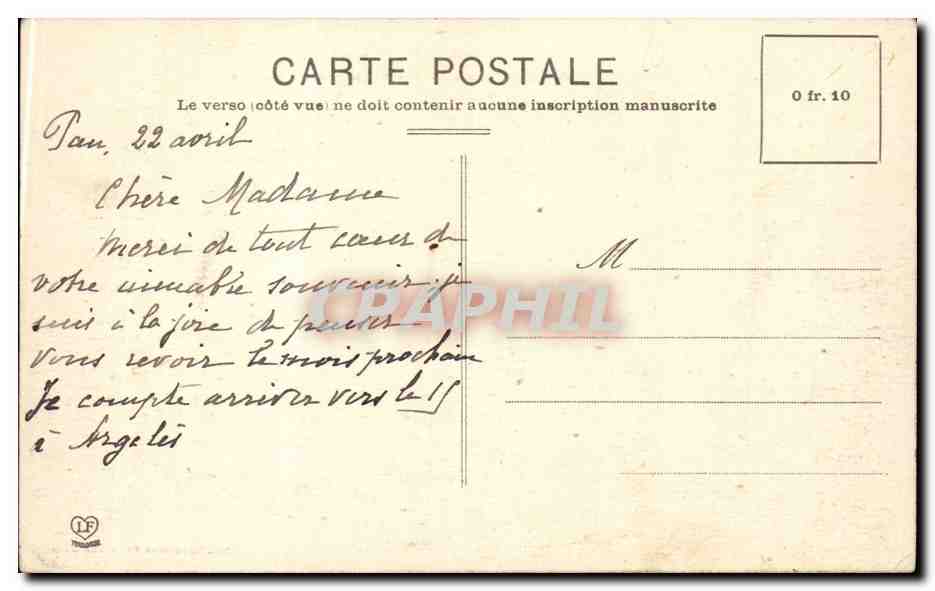 CARTE POSTALE
Le verso (côté vue) ne doit contenir aucune inscription manuscrite
0 fr. 10
Pau, 22 avril
Chère Madame
Merci de tout cœur de
votre aimable souvenir. je
suis à la joie de penser
vous revoir le mois prochain
Je compte arriver vers le 15
à Argelès
M
CPAPHIL
LF
TOULOUSE